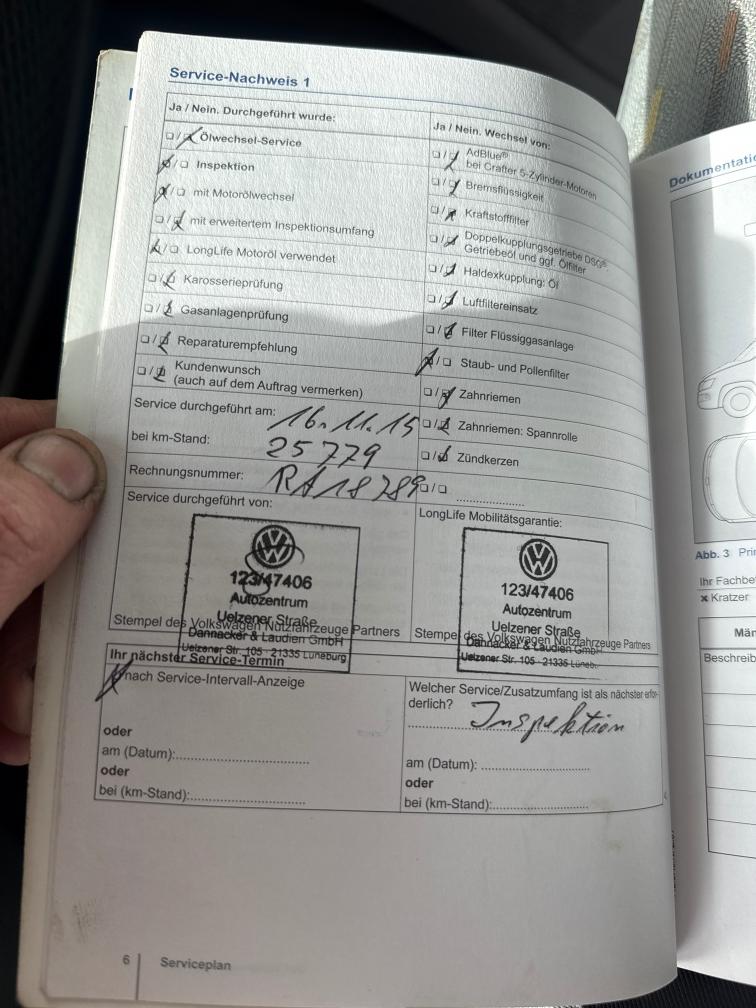 Service-Nachweis 1
Ja / Nein. Durchgeführt wurde:
❏/❏ Ölwechsel-Service
❏/❏ Inspektion
❏/❏ mit Motorölwechsel
❏/❏ mit erweitertem Inspektionsumfang
❏/❏ LongLife Motoröl verwendet
❏/❏ Karosserieprüfung
❏/❏ Gasanlagenprüfung
❏/❏ Reparaturempfehlung
❏/❏ Kundenwunsch
(auch auf dem Auftrag vermerken)
Ja / Nein. Wechsel von:
❏/❏ AdBlue®
bei Crafter 5-Zylinder-Motoren
❏/❏ Bremsflüssigkeit
❏/❏ Kraftstofffilter
❏/❏ Doppelkupplungsgetriebe DSG®:
Getriebeöl und ggf. Ölfilter
❏/❏ Haldexkupplung: Öl
❏/❏ Luftfiltereinsatz
❏/❏ Filter Flüssiggasanlage
❏/❏ Staub- und Pollenfilter
❏/❏ Zahnriemen
❏/❏ Zahnriemen: Spannrolle
❏/❏ Zündkerzen
❏/❏ ....................
Service durchgeführt am: 16.11.15
bei km-Stand: 25779
Rechnungsnummer: RA18789
Service durchgeführt von:
VW
123/47406
Autozentrum
Uelzener Straße
Dannacker & Laudien GmbH
Uelzener Str. 105 · 21335 Lüneburg
Stempel des Volkswagen Nutzfahrzeuge Partners
LongLife Mobilitätsgarantie:
VW
123/47406
Autozentrum
Uelzener Straße
Dannacker & Laudien GmbH
Uelzener Str. 105 · 21335 Lüneb.
Stempel des Volkswagen Nutzfahrzeuge Partners
Ihr nächster Service-Termin
nach Service-Intervall-Anzeige
oder
am (Datum):..............................
oder
bei (km-Stand):..............................
Welcher Service/Zusatzumfang ist als nächster erfor-
derlich?
Inspektion
am (Datum): ..............................
oder
bei (km-Stand):..............................
6 Serviceplan
Dokumentatio
Abb. 3 Prin
Ihr Fachbe
× Kratzer
Män
Beschreib